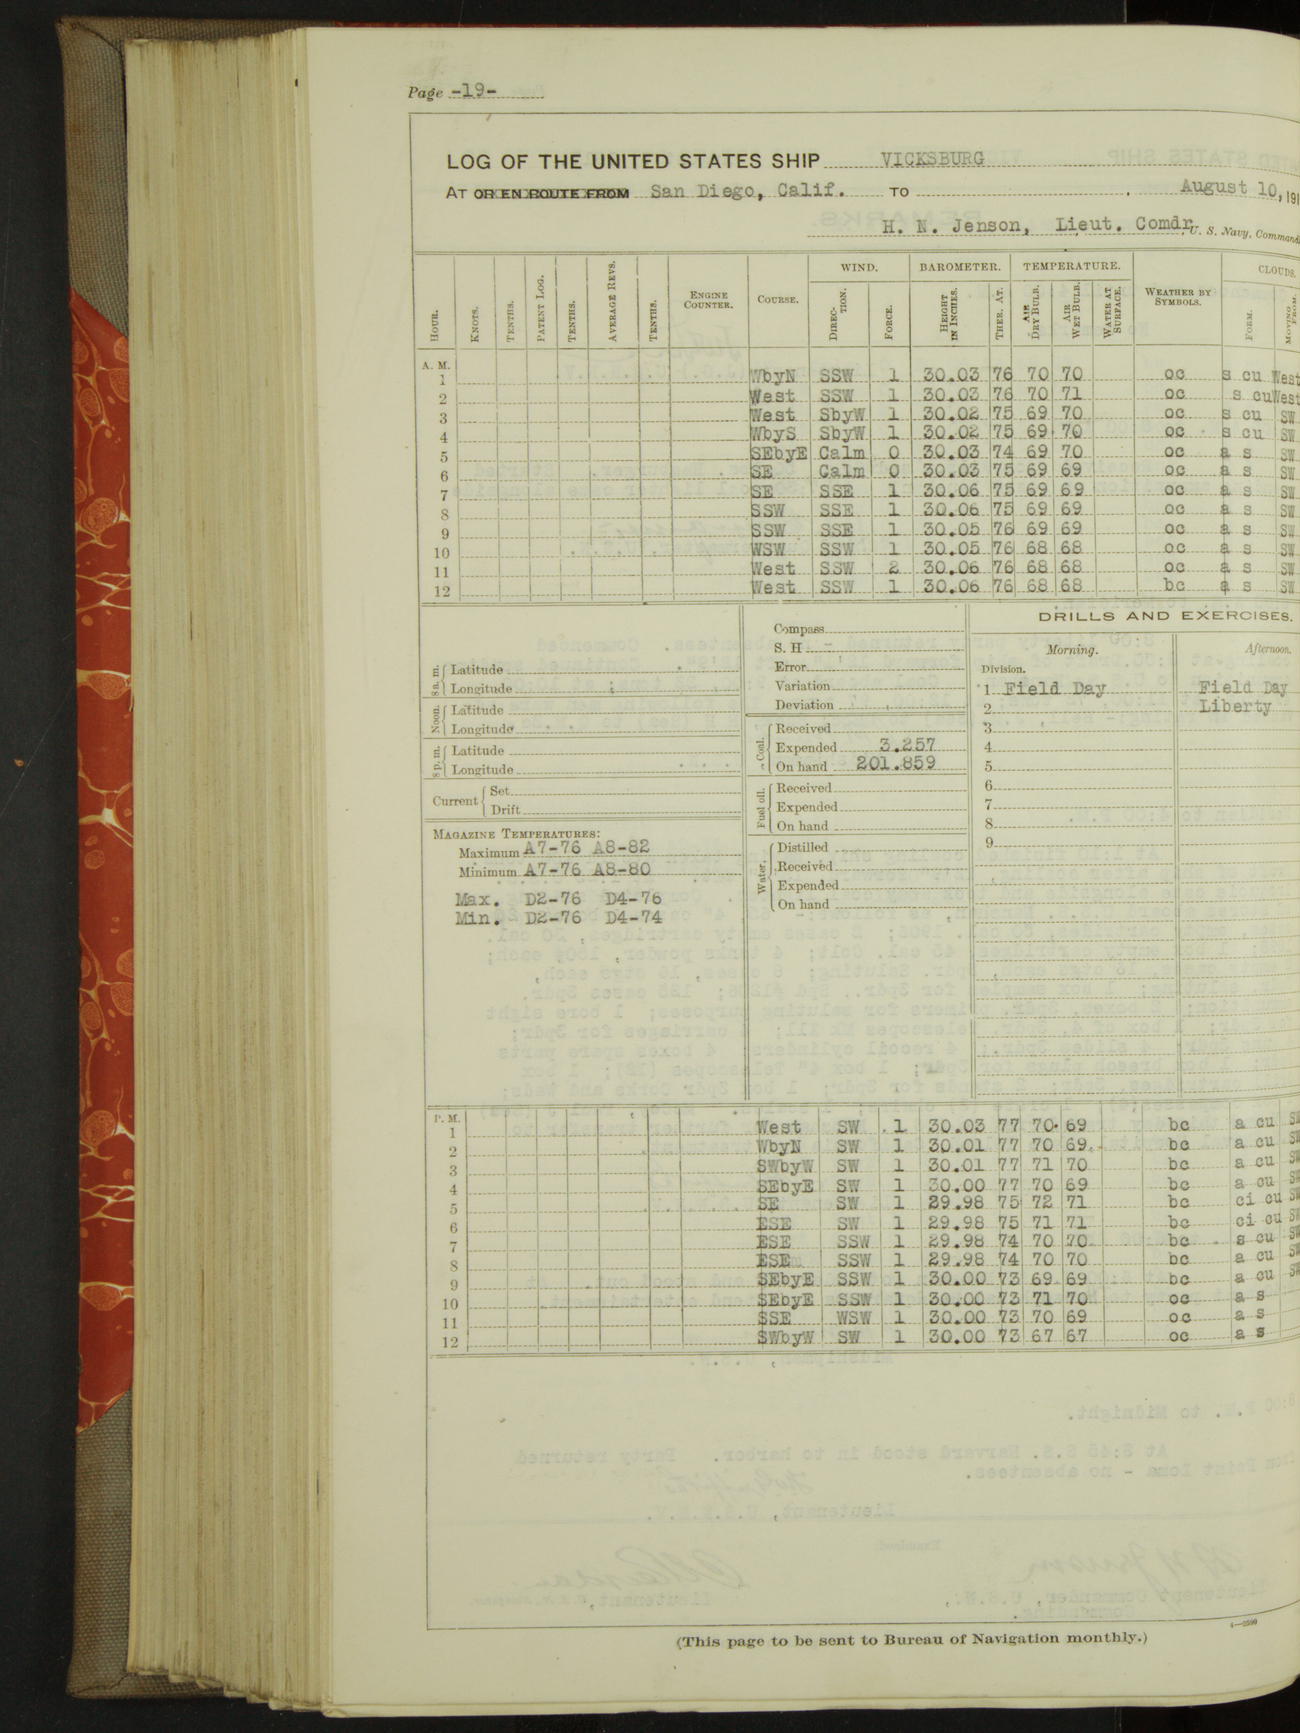 Page -19-
LOG OF THE UNITED STATES SHIP VICKSBURG
AT OR EN ROUTE FROM San Diego, Calif. TO , August 10, 191
H. N. Jenson, Lieut. Comdr, U. S. Navy, Command
HOUR. KNOTS. TENTHS. PATENT LOG. TENTHS. AVERAGE REVS. TENTHS. ENGINE COUNTER. COURSE. WIND. DIRECTION. FORCE. BAROMETER. HEIGHT IN INCHES. THER. AT. TEMPERATURE. AIR DRY BULB. AIR WET BULB. WATER AT SURFACE. WEATHER BY SYMBOLS. CLOUDS. FORM. MOVING FROM.
A. M.
1 WbyN SSW 1 30.03 76 70 70 oc s cu West
2 West SSW 1 30.03 76 70 71 oc s cu West
3 West SbyW 1 30.02 75 69 70 oc s cu SW
4 WbyS SbyW 1 30.02 75 69 70 oc s cu SW
5 SEbyE Calm 0 30.03 74 69 70 oc a s SW
6 SE Calm 0 30.03 75 69 69 oc a s SW
7 SE SSE 1 30.06 75 69 69 oc a s SW
8 SSW SSE 1 30.06 75 69 69 oc a s SW
9 SSW SSE 1 30.05 76 69 69 oc a s SW
10 WSW SSW 1 30.05 76 68 68 oc a s SW
11 West SSW 2 30.06 76 68 68 oc a s SW
12 West SSW 1 30.06 76 68 68 bc a s SW
8 a. m. Latitude
Longitude
Noon. Latitude
Longitude
8 p. m. Latitude
Longitude
Current Set
Drift
MAGAZINE TEMPERATURES:
Maximum A7-76 A8-82
Minimum A7-76 A8-80
Max. D2-76 D4-76
Min. D2-76 D4-74
Compass
S. H
Error
Variation
Deviation
Coal. Received
Expended 3.257
On hand 201.859
Fuel oil. Received
Expended
On hand
Water. Distilled
Received
Expended
On hand
DRILLS AND EXERCISES.
Morning. Afternoon.
Division.
1 Field Day Field Day
2 Liberty
3
4
5
6
7
8
9
P. M.
1 West SW 1 30.03 77 70 69 bc a cu SW
2 WbyN SW 1 30.01 77 70 69 bc a cu SW
3 SWbyW SW 1 30.01 77 71 70 bc a cu SW
4 SEbyE SW 1 30.00 77 70 69 bc a cu SW
5 SE SW 1 29.98 75 72 71 bc ci cu SW
6 ESE SW 1 29.98 75 71 71 bc ci cu SW
7 ESE SSW 1 29.98 74 70 70 bc s cu SW
8 ESE SSW 1 29.98 74 70 70 bc a cu SW
9 SEbyE SSW 1 30.00 73 69 69 bc a cu SW
10 SEbyE SSW 1 30.00 73 71 70 oc a s
11 SSE WSW 1 30.00 73 70 69 oc a s
12 SWbyW SW 1 30.00 73 67 67 oc a s
(This page to be sent to Bureau of Navigation monthly.)